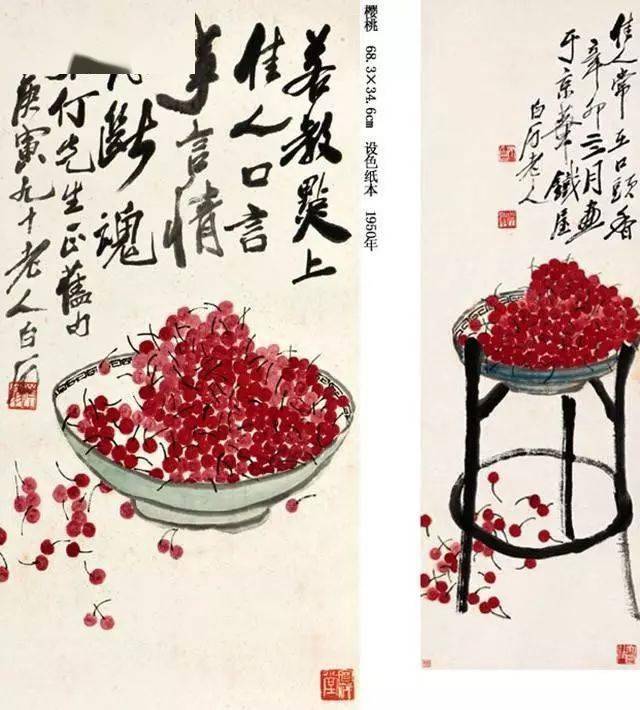 若教點上
佳人口言
事言情
斷魂
先生正舊句
庚寅九十老人白石
樱桃 68.3×34.6cm 设色纸本 1950年
佳人常在口頭香
辛卯三月畫
于京華鐵屋
白石老人